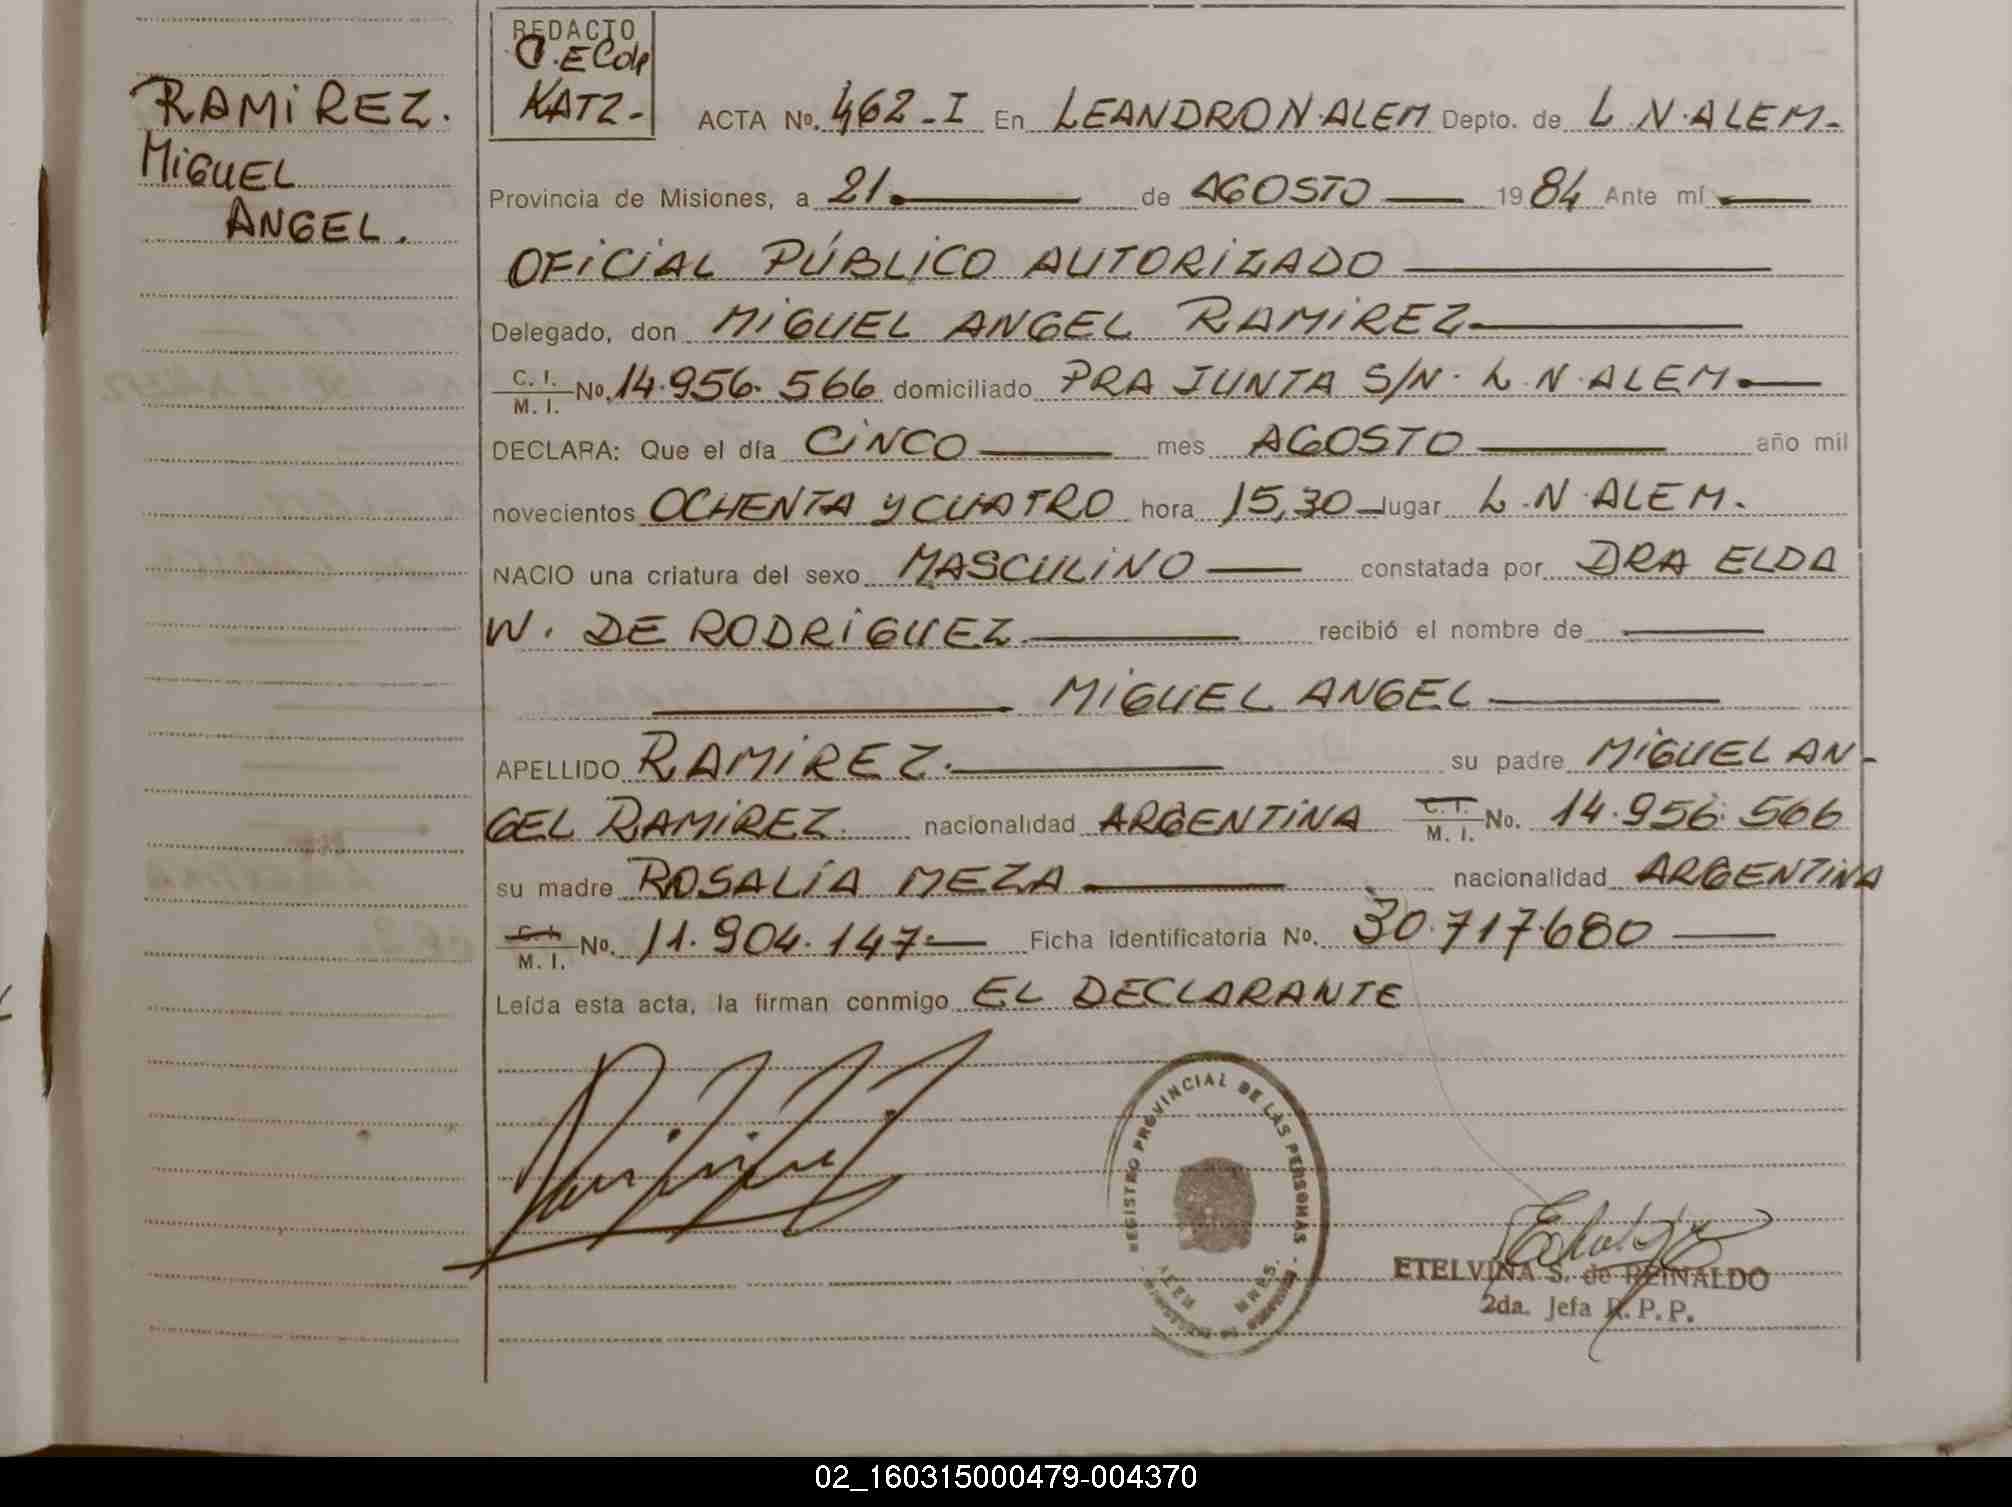 RAMIREZ.
MIGUEL
ANGEL.
REDACTO
KATZ-
ACTA No. 462-I En LEANDRO N. ALEM Depto. de L. N. ALEM-
Provincia de Misiones, a 21 de AGOSTO 1984 Ante mí
OFICIAL PÚBLICO AUTORIZADO
Delegado, don MIGUEL ANGEL RAMIREZ
C. I.
M. I. No. 14.956.566 domiciliado PRA JUNTA S/N. L. N. ALEM
DECLARA: Que el día CINCO mes AGOSTO año mil
novecientos OCHENTA Y CUATRO hora 15,30 lugar L. N. ALEM.
NACIO una criatura del sexo MASCULINO constatada por DRA ELDA
W. DE RODRIGUEZ recibió el nombre de
MIGUEL ANGEL
APELLIDO RAMIREZ. su padre MIGUEL AN-
GEL RAMIREZ. nacionalidad ARGENTINA C. I. M. I. No. 14.956.566
su madre ROSALÍA MEZA nacionalidad ARGENTINA
C. I. M. I. No. 11.904.147 Ficha Identificatoria No. 30.717.680
Leída esta acta, la firman conmigo EL DECLARANTE
REGISTRO PROVINCIAL DE LAS PERSONAS
ALEM MNES.
ETELVINA S. de REINALDO
2da. Jefa R. P. P.
02_160315000479-004370